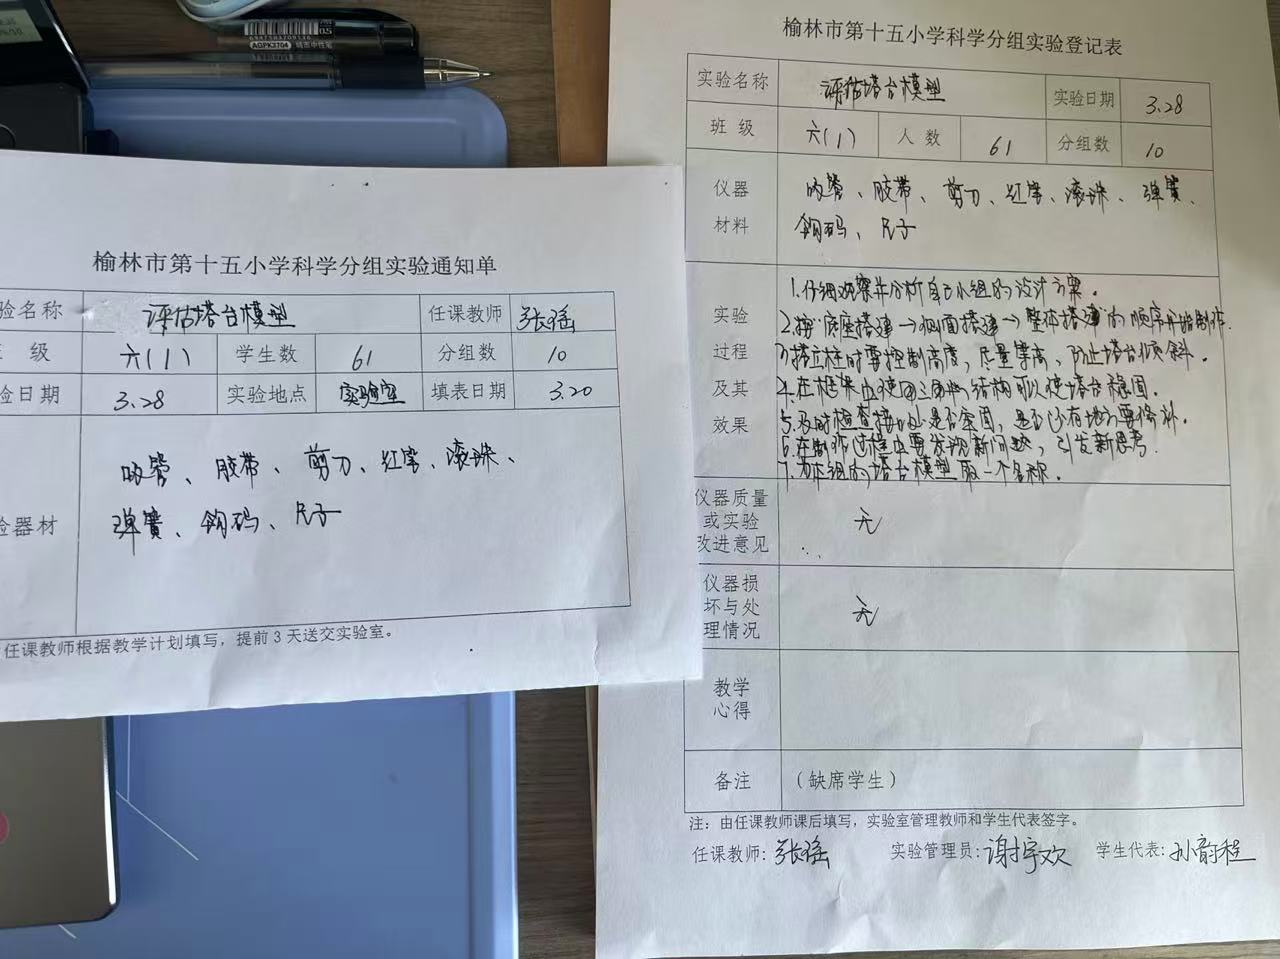 0.5
AGPK3704 晨光中性笔
榆林市第十五小学科学分组实验通知单
验名称 评估塔台模型 任课教师 张瑶
级 六(1) 学生数 61 分组数 10
验日期 3.28 实验地点 实验室 填表日期 3.20
验器材 吸管、胶带、剪刀、红笔、滚珠、
弹簧、钩码、尺子
任课教师根据教学计划填写，提前3天送交实验室。
榆林市第十五小学科学分组实验登记表
实验名称 评估塔台模型 实验日期 3.28
班级 六(1) 人数 61 分组数 10
仪器材料 吸管、胶带、剪刀、红笔、滚珠、弹簧、
钩码、尺子
实验过程及其效果
1.仔细观察并分析自己小组的设计方案。
2.按"底座搭建→侧面搭建→整体搭建"的顺序开始制作
3.搭立柱时要控制高度，尽量等高，防止塔台倾斜。
4.在框架中使用三角形结构可以使塔台稳固。
5.及时检查接口处是否牢固，是否还有地方要修补。
6.在制作过程中要发现新问题，引发新思考.
7.为本组的塔台模型取一个名称.
仪器质量或实验改进意见 无
仪器损坏与处理情况 无
教学心得
备注 （缺席学生）
注：由任课教师课后填写，实验室管理教师和学生代表签字。
任课教师：张瑶 实验管理员：谢宇欢 学生代表：孙韵程